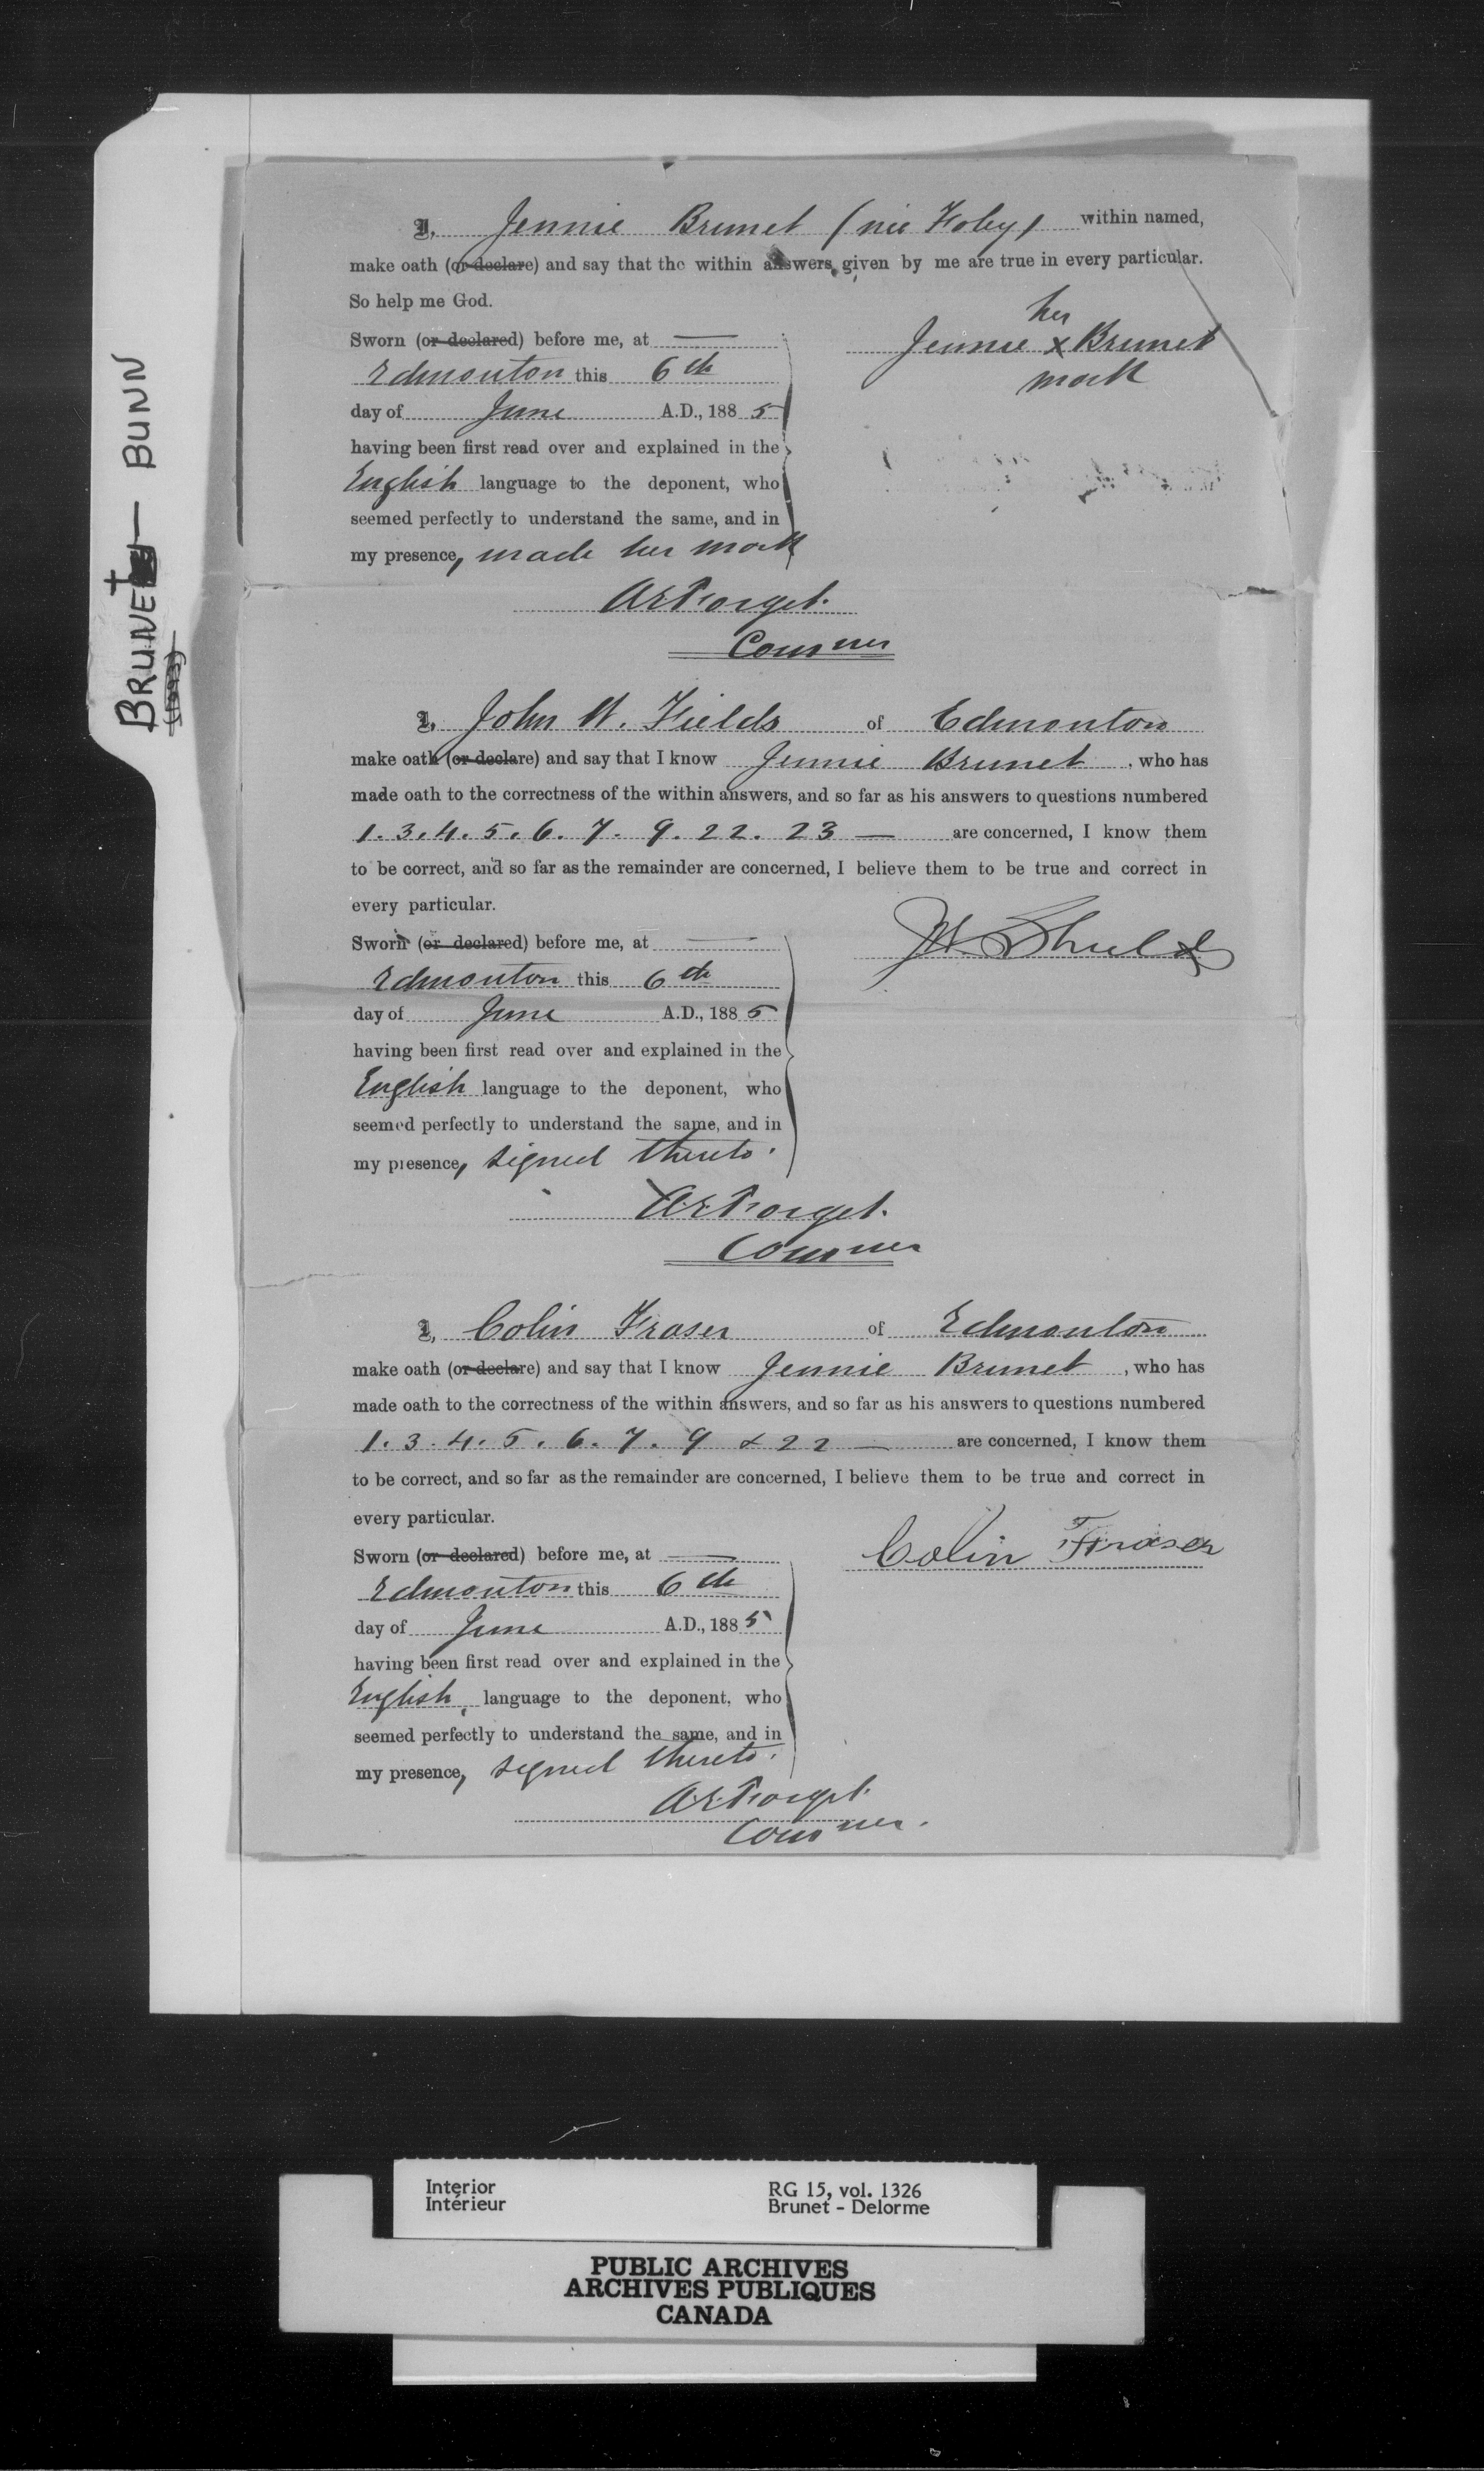 BRUNET — BUNN
I, Jennie Brunet (née Foley) within named,
make oath (or declare) and say that the within answers given by me are true in every particular.
So help me God.
her
Sworn (or declared) before me, at — Jennie x Brunet
Edmonton this 6th mark
day of June A.D., 1885
having been first read over and explained in the
English language to the deponent, who
seemed perfectly to understand the same, and in
my presence, made her mark
AEForget.
Commer
I, John W. Fields of Edmonton
make oath (or declare) and say that I know Jennie Brunet, who has
made oath to the correctness of the within answers, and so far as his answers to questions numbered
1. 3. 4. 5. 6. 7. 9. 22. 23 — are concerned, I know them
to be correct, and so far as the remainder are concerned, I believe them to be true and correct in
every particular.
Sworn (or declared) before me, at —
Edmonton this 6th
day of June A.D., 1885
having been first read over and explained in the
English language to the deponent, who
seemed perfectly to understand the same, and in
my presence, signed thereto.
AEForget.
Commer
I, Colin Fraser of Edmonton
make oath (or declare) and say that I know Jennie Brunet, who has
made oath to the correctness of the within answers, and so far as his answers to questions numbered
1. 3. 4. 5. 6. 7. 9 & 22 — are concerned, I know them
to be correct, and so far as the remainder are concerned, I believe them to be true and correct in
every particular.
Sworn (or declared) before me, at — Colin Fraser
Edmonton this 6th
day of June A.D., 1885
having been first read over and explained in the
English language to the deponent, who
seemed perfectly to understand the same, and in
my presence, signed thereto.
AEForget.
Commer.
Interior RG 15, vol. 1326
Intérieur Brunet - Delorme
PUBLIC ARCHIVES
ARCHIVES PUBLIQUES
CANADA